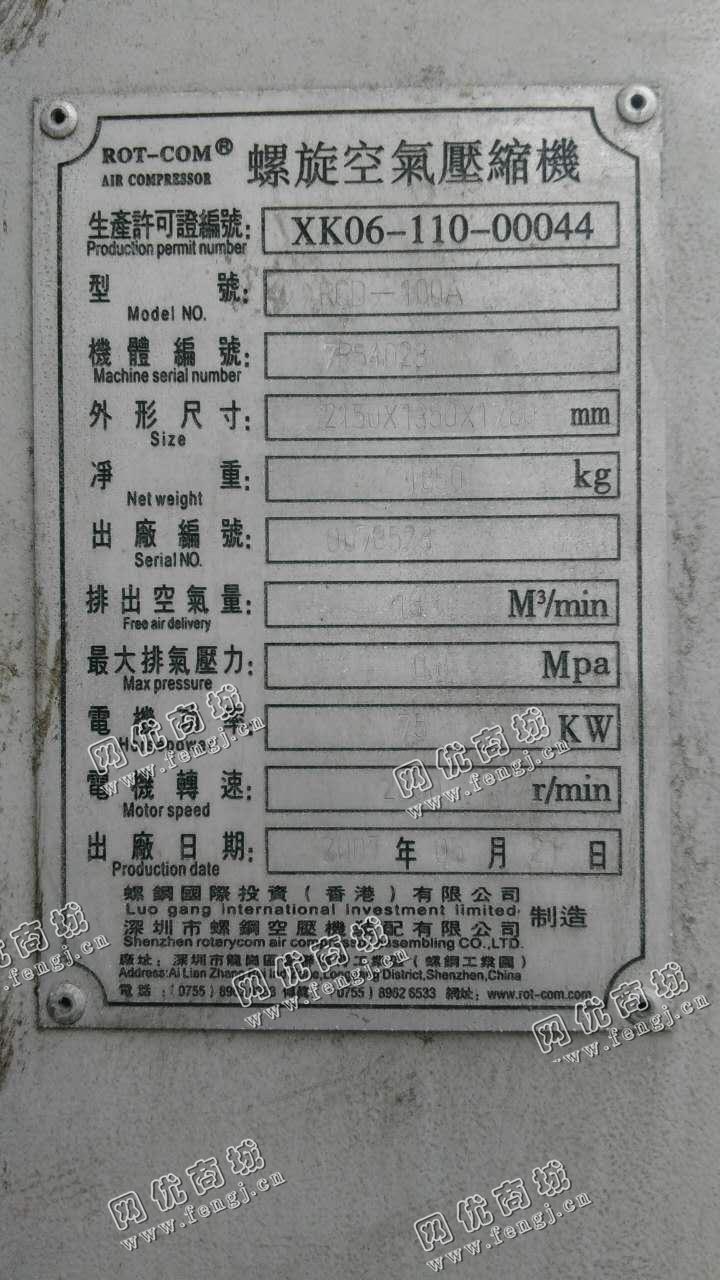 ROT-COM® 螺旋空氣壓縮機
AIR COMPRESSOR
生產許可證編號: XK06-110-00044
Production permit number
型 號: RCD-100A
Model NO.
機體編號:
Machine serial number
外形尺寸: mm
Size
凈 重: kg
Net weight
出廠編號:
Serial NO.
排出空氣量: M³/min
Free air delivery
最大排氣壓力: Mpa
Max pressure
電機 率: 75 KW
電機轉速: r/min
Motor speed
出廠日期: 2007 年 月 日
Production date
螺鋼國際投資(香港)有限公司
Luo gang international Investment limited.
深圳市螺鋼空壓機 配有限公司 制造
Shenzhen rotarycom air CO.,LTD.
廠址:深圳市龍崗區 工業 (螺鋼工業園)
Address:Ai Lian District,Shenzhen,China
電話:(0755) 0755) 8962 6533 網址:www.rot-com.com
网优商城
www.fengj.cn
网优商城
www.fengj.cn
网优商城
www.fengj.cn
网优商城
www.fengj.cn
网优商城
www.fengj.cn
网优商城
www.fengj.cn
网优商城
www.fengj.cn